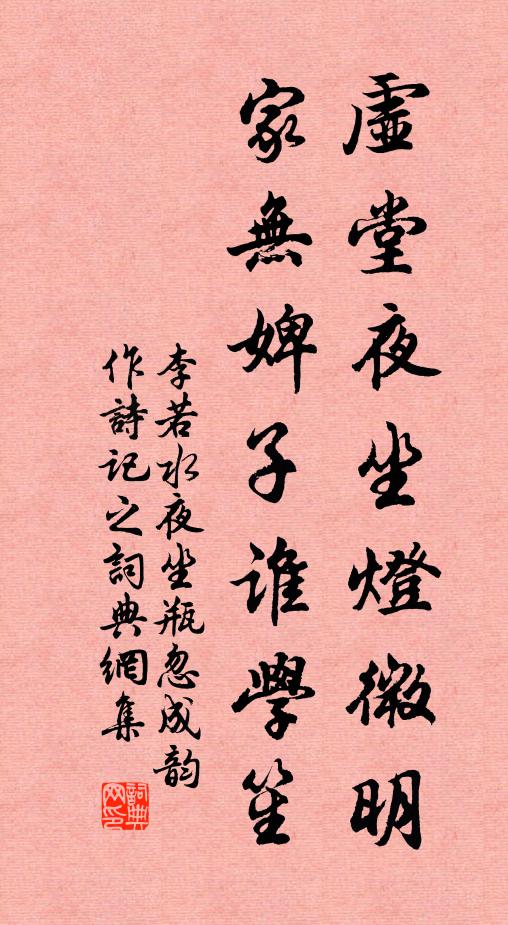 虛堂夜坐燈微明
家無婢子誰學笙
李若水夜坐瓶忽成韵
作詩記之詞典網集
詞典
网印